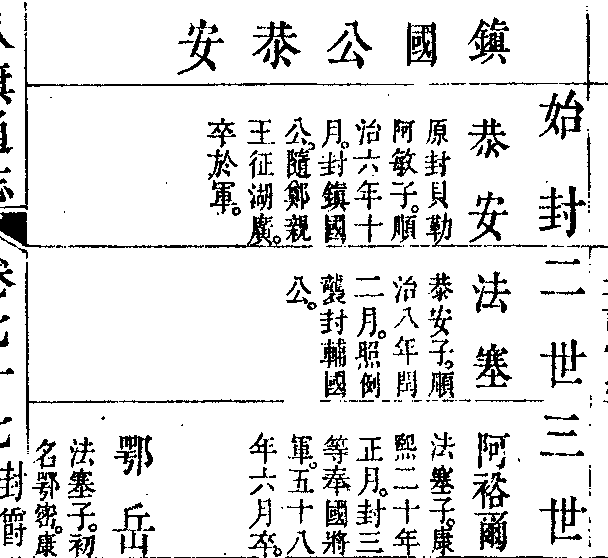 鎮國公恭安
始封
恭安
原封貝勒
阿敏子。順
治六年十
月。封鎮國
公。隨鄭親
王征湖廣。
卒於軍。
二世
法塞
恭安子。順
治八年閏
二月。照例
襲封輔國
公。
三世
阿裕爾
法塞子。康
熙二十年
正月。封三
等奉國將
軍。五十八
年六月卒。
鄂岳
法塞子。初
名鄂密。康
八旗通志
卷七十七
封爵